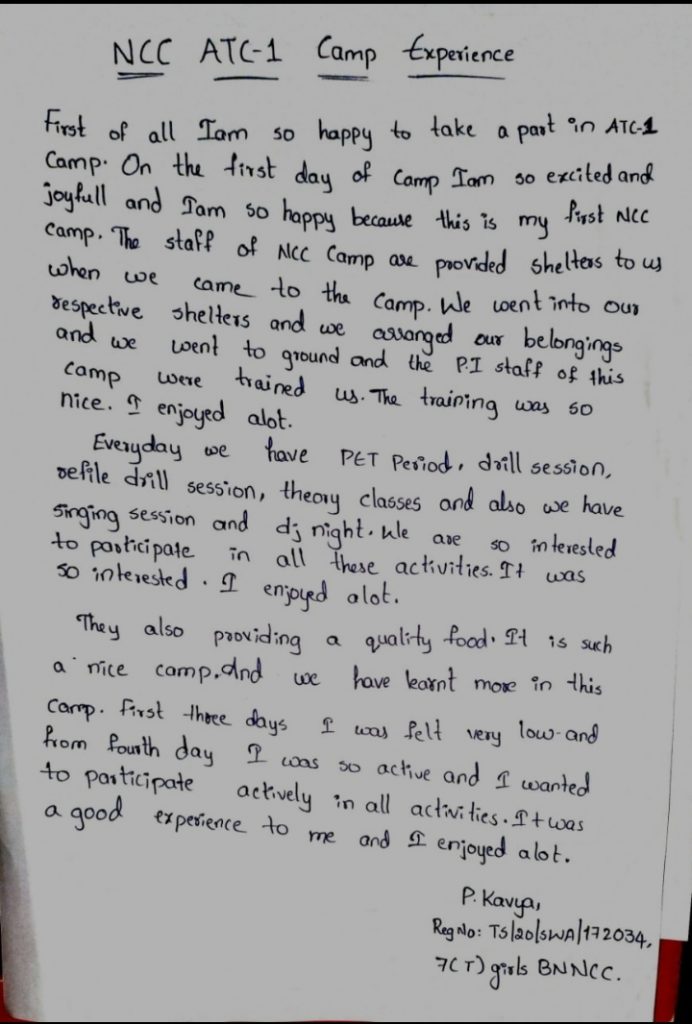 NCC ATC-1 Camp Experience
First of all Iam so happy to take a part in ATC-1
Camp. On the first day of Camp Iam so excited and
joyfull and Iam so happy because this is my first NCC
Camp. The staff of NCC Camp are provided shelters to us
when we came to the Camp. We went into our
respective shelters and we arranged our belongings
and we went to ground and the P.I staff of this
camp were trained us. The training was so
nice. I enjoyed alot.
Everyday we have PET Period, drill session,
refile drill session, theory classes and also we have
singing session and dj night. We are so interested
to participate in all these activities. It was
so interested. I enjoyed alot.
They also providing a quality food. It is such
a nice camp. And we have learnt more in this
Camp. First three days I was felt very low and
from fourth day I was so active and I wanted
to participate actively in all activities. It was
a good experience to me and I enjoyed alot.
P. Kavya,
Reg No: TS/20/SWA/172034,
7(T) girls BN NCC.